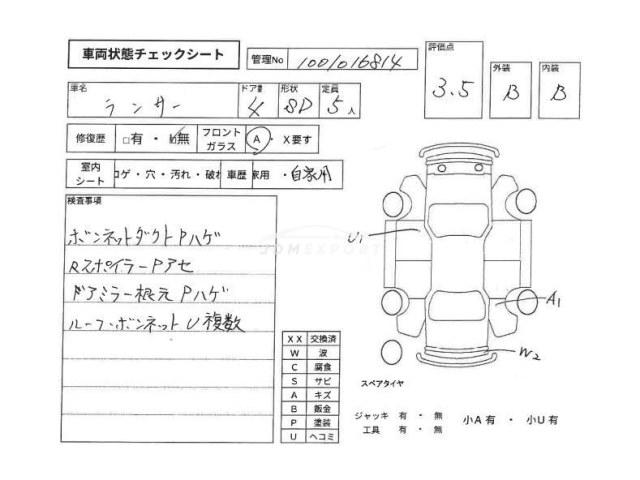 車両状態チェックシート
管理No 1001016814
評価点 3.5
外装 B
内装 B
車名 ランサー
ドア量 4
形状 SD
定員 5人
修復歴 □有 ・ 無
フロントガラス A ・ X要す
室内シート コゲ・穴・汚れ・破れ
車歴 家用 ・自家用
検査事項
ボンネットダクトPハゲ
Rスポイラー Pアセ
ドアミラー根元Pハゲ
ルーフ・ボンネットU複数
JDMEXPORT
U1
A1
W2
スペアタイヤ
XX 交換済
W 波
C 腐食
S サビ
A キズ
B 鈑金
P 塗装
U ヘコミ
ジャッキ 有 ・ 無
工具 有 ・ 無
小A有 ・ 小U有